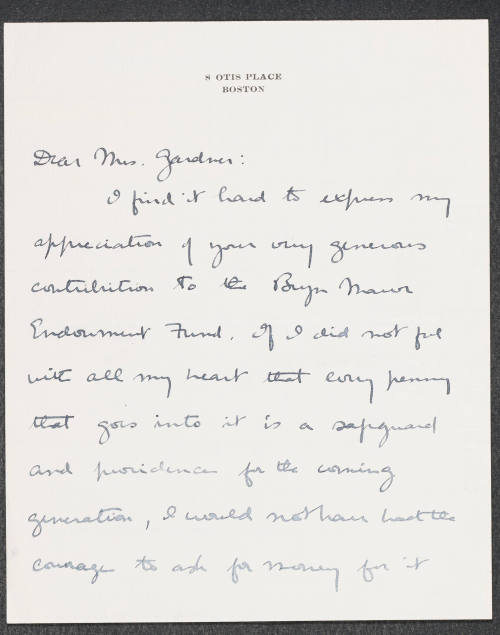 8 OTIS PLACE
BOSTON
Dear Mrs. Gardner:
I find it hard to express my
appreciation of your very generous
contribution to the Bryn Mawr
Endowment Fund. If I did not feel
with all my heart that every penny
that goes into it is a safeguard
and providence for the coming
generation, I would not have had the
courage to ask for money for it